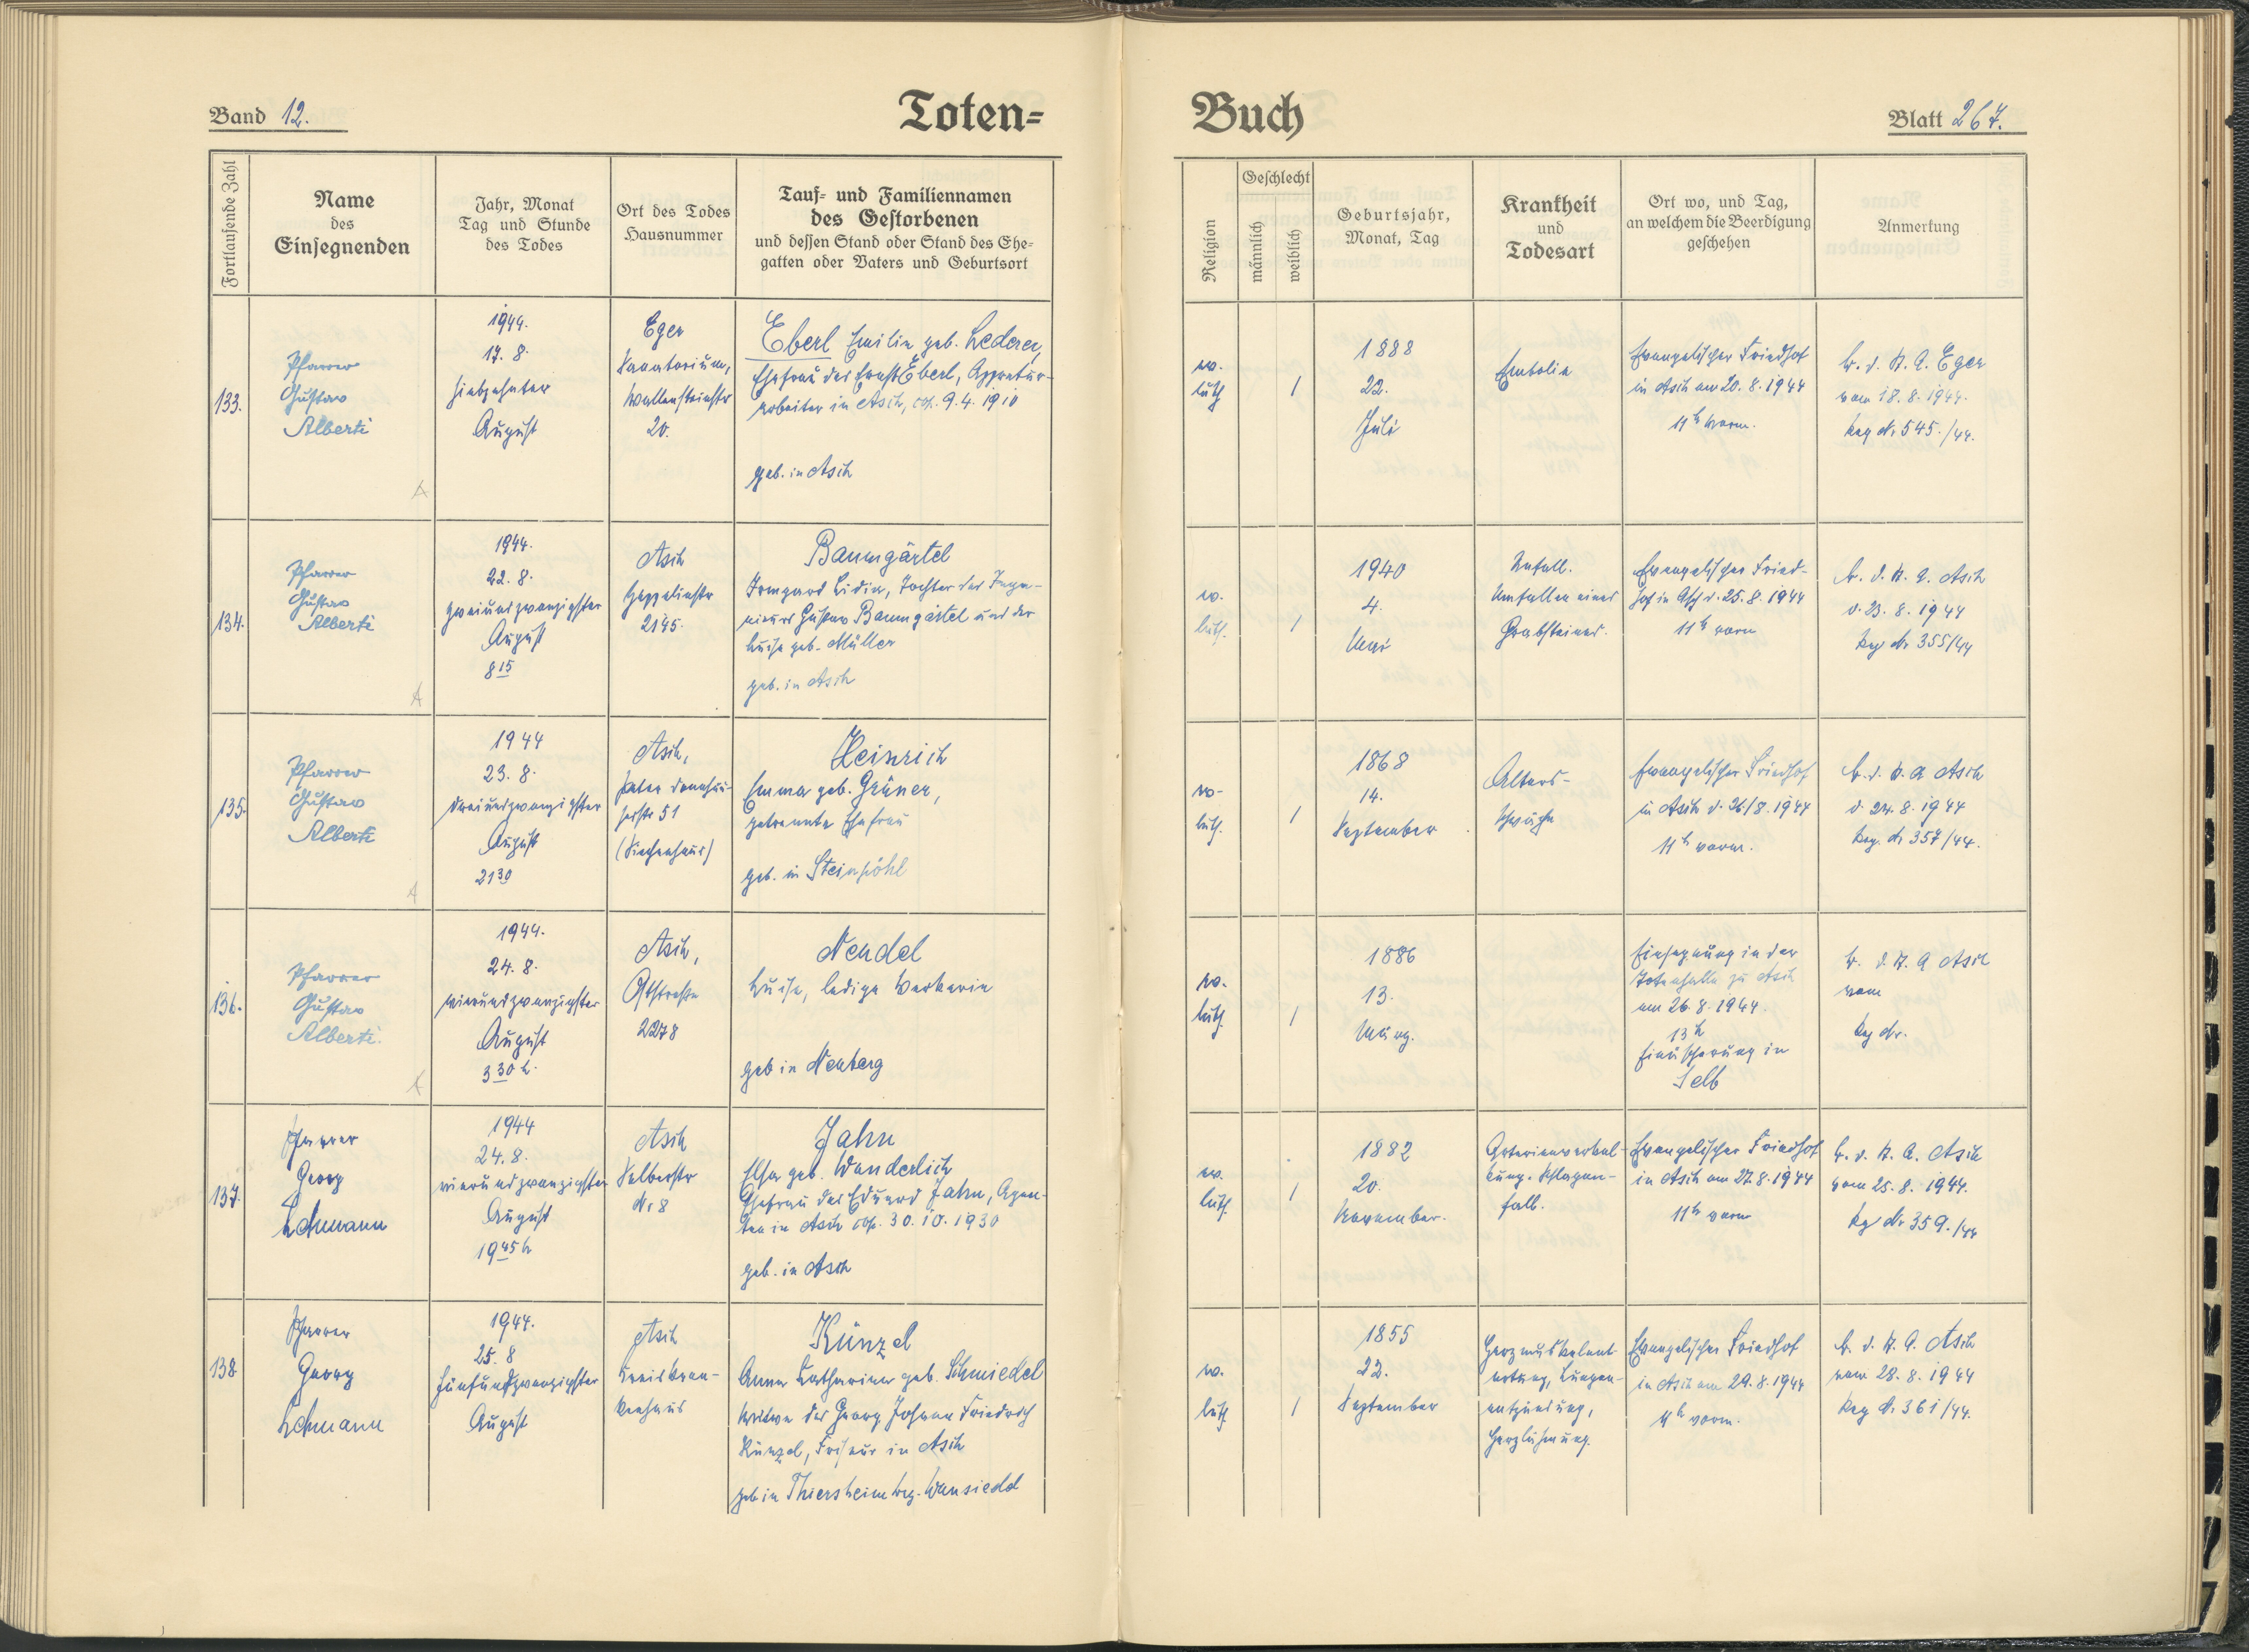 Band 12.
Toten=
Buch
Blatt 267.
Fortlaufende Zahl
Name
des
Einsegnenden
Jahr, Monat
Tag und Stunde
des Todes
Ort des Todes
Hausnummer
Tauf= und Familiennamen
des Gestorbenen
und dessen Stand oder Stand des Ehe=
gatten oder Vaters und Geburtsort
Religion
Geschlecht
männlich
weiblich
Geburtsjahr,
Monat, Tag
Krankheit
und
Todesart
Ort wo, und Tag,
an welchem die Beerdigung
geschehen
Anmerkung
133.
Pfarrer
Gustav
Alberti
1944.
17. 8.
siebzehnter
August
Eger
Sanatorium,
Wallensteinstr
20.
Eberl Emilie geb. Lederer,
Ehefrau des Ernst Eberl, Appretur-
arbeiter in Asch, cop. 9. 4. 1910
geb. in Asch
ev.
luth
1
1888
22.
Juli
Embolie
Evangelischer Friedhof
in Asch am 20. 8. 1944
11 h vorm.
b. d. St. A. Eger
vom 18. 8. 1944.
Reg Nr 545./44.
134.
Pfarrer
Gustav
Alberti
1944.
22. 8.
zweiundzwanzigster
August
8 15
Asch
Zeppelinstr
2195.
Baumgärtel
Irmgard Lidia, Tochter des Inge-
nieurs Gustav Baumgärtel und der
Luise geb. Müller
geb. in Asch
ev.
luth.
1
1940
4.
Mai
Unfall.
Umfallen eines
Grabsteines.
Evangelischer Fried-
hof in Asch d. 25. 8. 1944
11 h vorm
b. d. St. A. Asch
v. 23. 8. 1944
Reg Nr 355/44
135.
Pfarrer
Gustav
Alberti
1944
23. 8.
dreiundzwanzigster
August
21 30
Asch,
Peter Donnhäu-
serstr 51
(Siechenhaus)
Heinrich
Emma geb. Grüner,
getrennte Ehefrau
geb. in Steinpöhl
ev.
luth.
1
1868
14.
September
Alters-
schwäche
Evangelischer Friedhof
in Asch d. 26/8. 1944
11 h vorm.
b. d. St. A Asch
v. 24. 8. 1944
Reg. Nr 357/44.
136.
Pfarrer
Gustav
Alberti.
1944.
24. 8.
vierundzwanzigster
August
3 30 h.
Asch,
2278
Nendel
Luise, ledige Weberin
geb in Neuberg
ev.
luth.
1
1886
13.
Einsegnung in der
Totenhalle zu Asch
am 26. 8. 1944.
13 h
Einäscherung in
Selb
b. d. St. A Asch
vom
Reg Nr.
137.
Pfarrer
Georg
Lehmann
1944
24. 8.
vierundzwanzigster
August
19 45 h
Asch
Selberstr
Nr 8
Jahn
Elsa geb. Wunderlich
Ehefrau des Eduard Jahn, Agen-
ten in Asch cop. 30. 10. 1930
geb. in Asch
ev.
luth.
1
1882
20.
November.
Arterienverkal-
kung. Schlagan-
fall.
Evangelischer Friedhof
in Asch am 27. 8. 1944
11 h vorm
b. d. St. A. Asch
vom 25. 8. 1944.
Reg Nr 359./44
138.
Pfarrer
Georg
Lehmann
1944.
25. 8
fünfundzwanzigster
August
Asch
Kreiskran-
kenhaus
Künzel
Anna Katharina geb. Schmiedel
Witwe des Georg Johann Friedrich
Künzel, Friseur in Asch
geb in Thiersheim bez. Wunsiedel
ev.
luth
1
1855
22.
September
Herzmuskelent-
artung, Lungen-
entzündung,
Herzlähmung.
Evangelischer Friedhof
in Asch am 29. 8. 1944
11 h vorm.
b. d. St. A. Asch
vom 28. 8. 1944
Reg Nr 361/44.